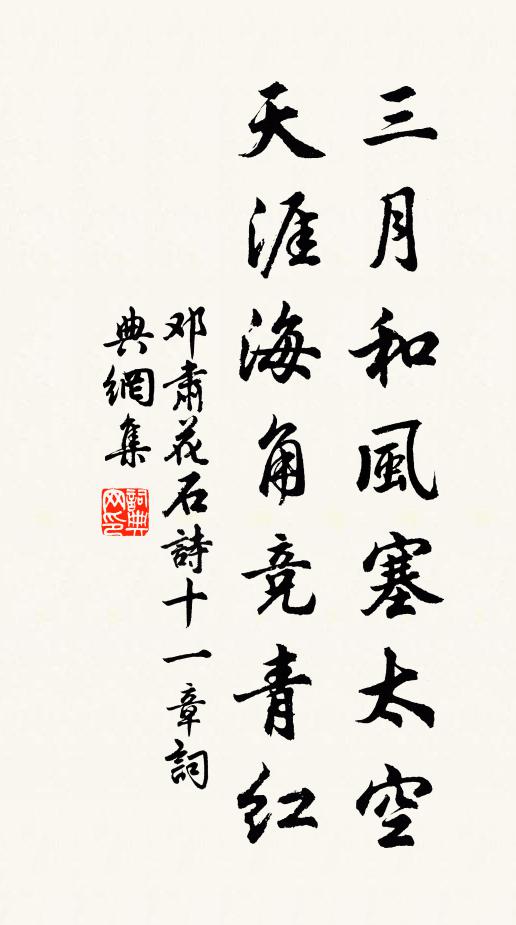 三月和風塞太空
天涯海角竞青红
邓肅花石詩十一章詞
典網集
詞典
网印